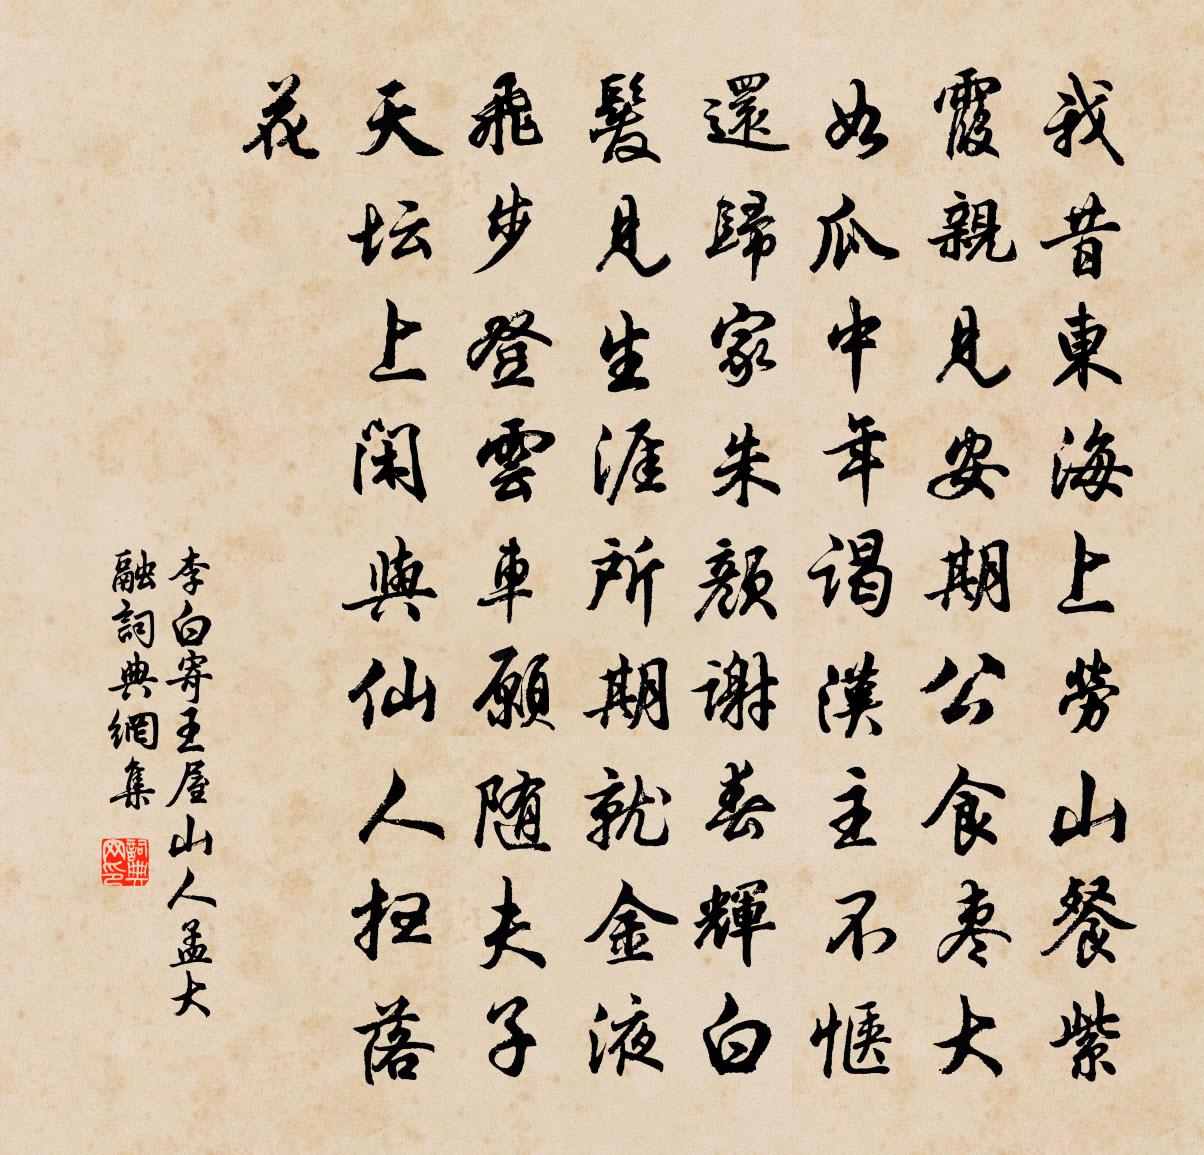 我昔東海上勞山餐紫
霞親見安期公食枣大
如瓜中年谒漢主不惬
還歸家朱顔謝春輝白
髮見生涯所期就金液
飛步登雲車願随夫子
天坛上闲與仙人扫落
花
李白寄王屋山人孟大
融詞典網集
詞典网印